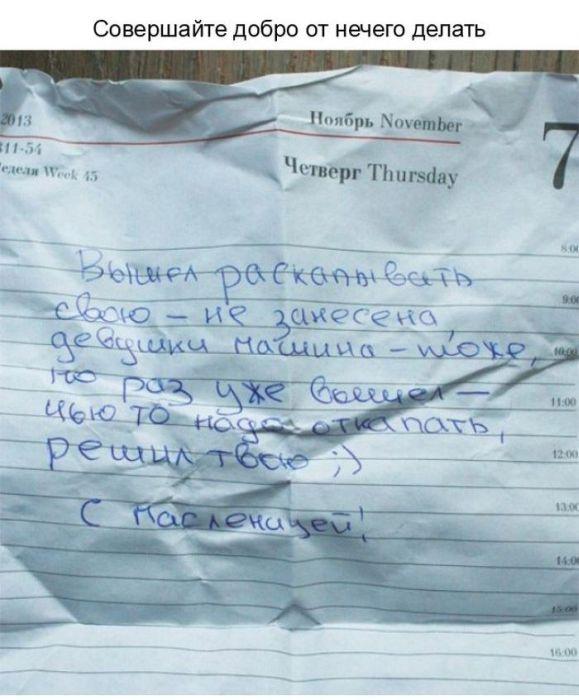 Совершайте добро от нечего делать
2013
Ноябрь November
7
311-54
Четверг Thursday
Week 45
8:00
Вышел раскапывать
9:00
свою – не занесена,
девушки машина – тоже,
10:00
но раз уже вышел –
11:00
чью то надо откапать,
решил твою ;)
12:00
С Масленицей!
13:00
14:00
15:00
16:00